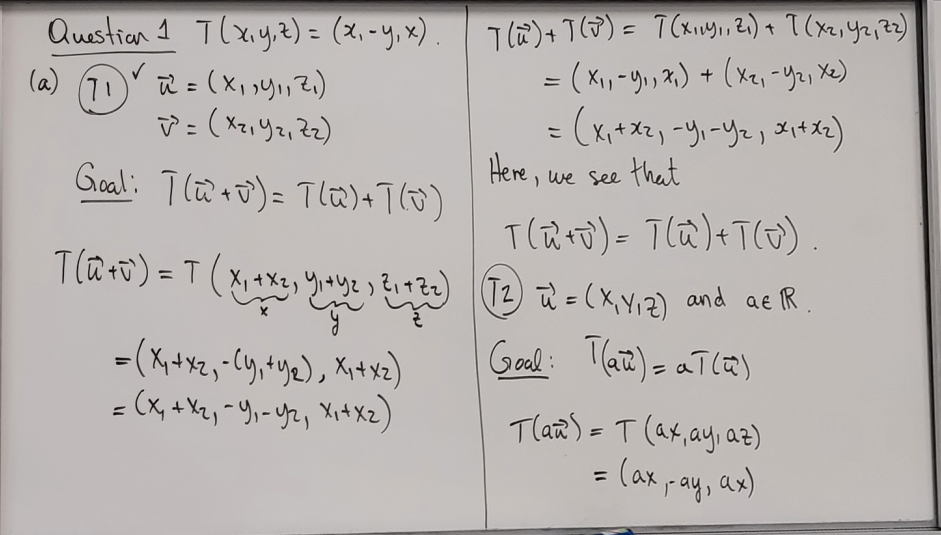 Question 1 T(x,y,z) = (x,-y,x).
(a) T1 ✓ u⃗ = (x₁,y₁,z₁)
v⃗ = (x₂,y₂,z₂)
Goal: T(u⃗+v⃗) = T(u⃗)+T(v⃗)
T(u⃗+v⃗) = T(x₁+x₂, y₁+y₂, z₁+z₂)
x y z
=(x₁+x₂,-(y₁+y₂), x₁+x₂)
=(x₁+x₂, -y₁-y₂, x₁+x₂)
T(u⃗)+T(v⃗) = T(x₁,y₁,z₁) + T(x₂,y₂,z₂)
= (x₁,-y₁,x₁) + (x₂,-y₂,x₂)
= (x₁+x₂, -y₁-y₂, x₁+x₂)
Here, we see that
T(u⃗+v⃗) = T(u⃗)+T(v⃗).
T2 u⃗ = (x,y,z) and a∈ℝ.
Goal: T(au⃗) = aT(u⃗)
T(au⃗) = T(ax,ay,az)
= (ax,-ay, ax)